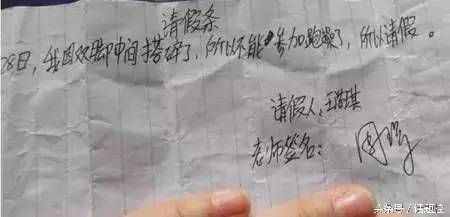 请假条
28日,我因双脚中间搭碎了,所以不能参加跑操了,所以请假。
请假人:王浩琪
老师签名:
头条号/